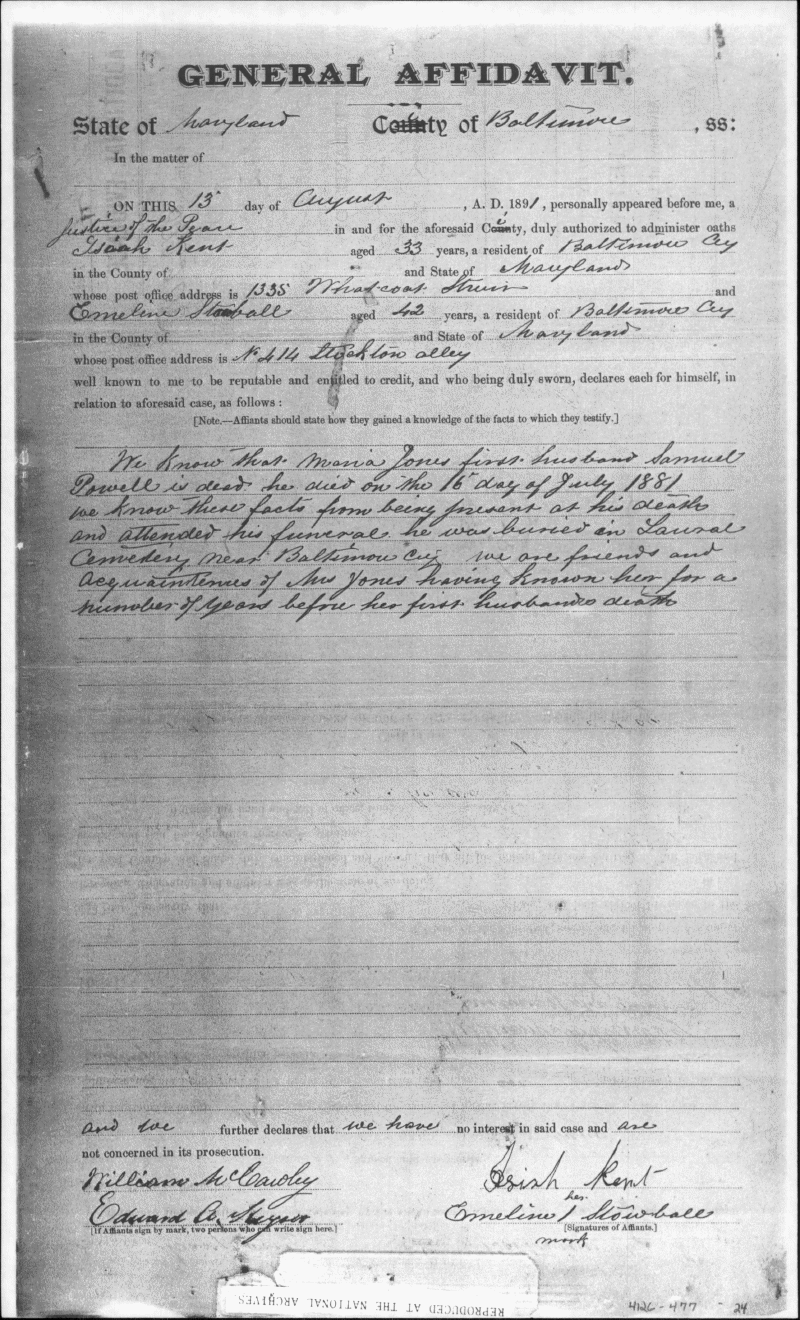 GENERAL AFFIDAVIT.
State of Maryland County of Baltimore, ss:
In the matter of
ON THIS 13 day of August, A. D. 1891, personally appeared before me, a
Justice of the Peace in and for the aforesaid City, duly authorized to administer oaths
Isaiah Kent aged 33 years, a resident of Baltimore City
in the County of and State of Maryland
whose post office address is 1335 Whatcoat Street and
Emeline Stowball aged 42 years, a resident of Baltimore City
in the County of and State of Maryland
whose post office address is No 414 Stockton alley
well known to me to be reputable and entitled to credit, and who being duly sworn, declares each for himself, in
relation to aforesaid case, as follows:
[Note.—Affiants should state how they gained a knowledge of the facts to which they testify.]
We Know that Maria Jones first husband Samuel
Powell is dead he died on the 16 day of July 1881
we know these facts from being present at his death
and attended his funeral he was buried in Laural
Cemetery near Baltimore City we are friends and
Acquaintences of Mrs Jones having known her for a
number of years before her first husbands death
and we further declares that we have no interest in said case and are
not concerned in its prosecution.
William McCawley Isiah Kent
Edward A. her
Emeline / Stowball
[If Affiants sign by mark, two persons who can write sign here.] [Signatures of Affiants.]
mark
REPRODUCED AT THE NATIONAL ARCHIVES
4126-477 24